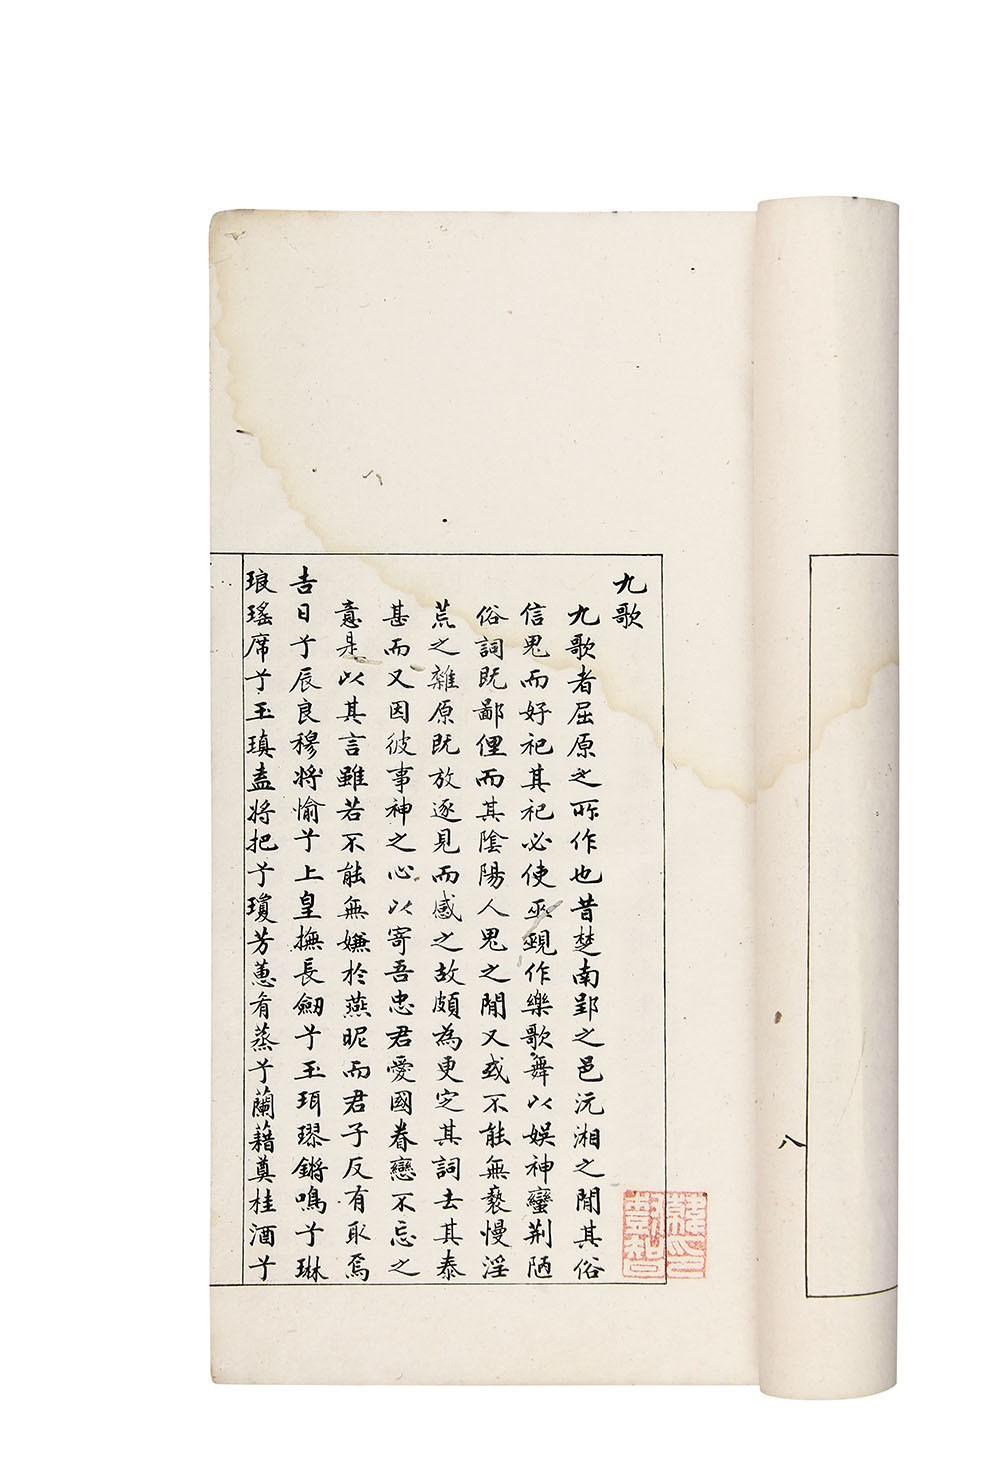 八
九歌
九歌者屈原之所作也昔楚南郢之邑沅湘之閒其俗
信鬼而好祀其祀必使巫覡作樂歌舞以娛神蠻荆陋
俗詞既鄙俚而其陰陽人鬼之閒又或不能無褻慢淫
荒之雜原既放逐見而感之故頗為更定其詞去其泰
甚而又因彼事神之心以寄吾忠君愛國眷戀不忘之
意是以其言雖若不能無嫌於燕昵而君子反有取焉
吉日兮辰良穆將愉兮上皇撫長劒兮玉珥璆鏘鳴兮琳
琅瑤席兮玉瑱盍將把兮瓊芳蕙肴蒸兮蘭藉奠桂酒兮